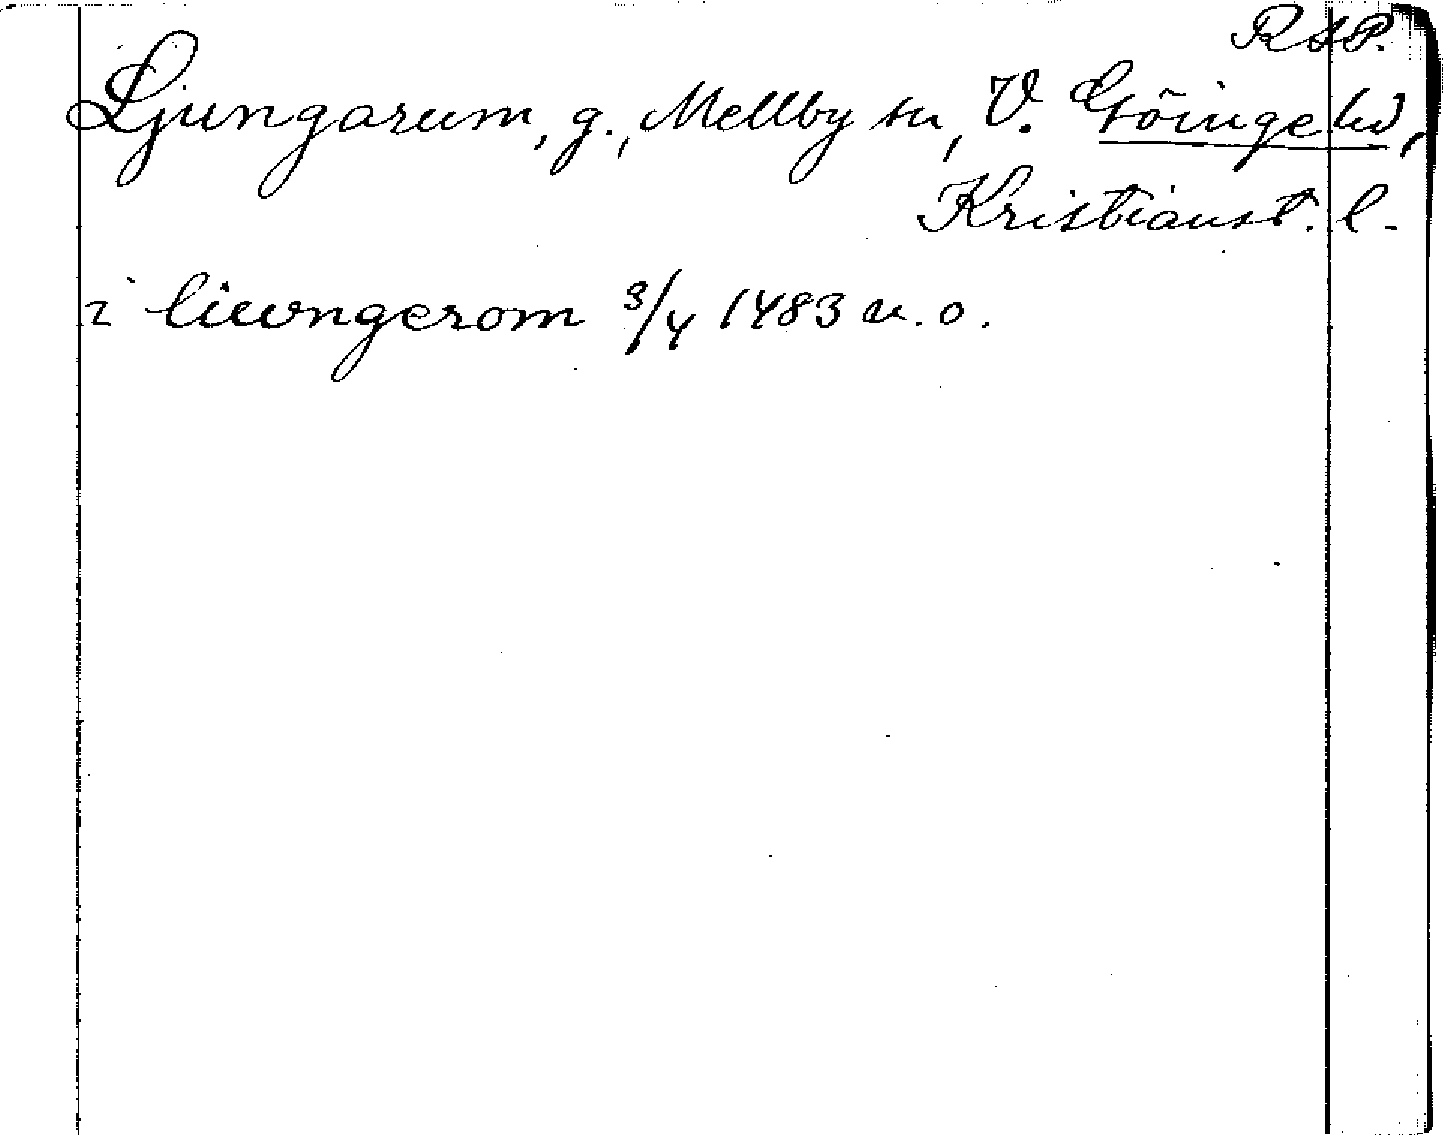 RAP.
Ljungarum, g., Mellby sn, V. Göinge hd,
Kristianst. l.
i liwngerom 3/4 1483 u. o.